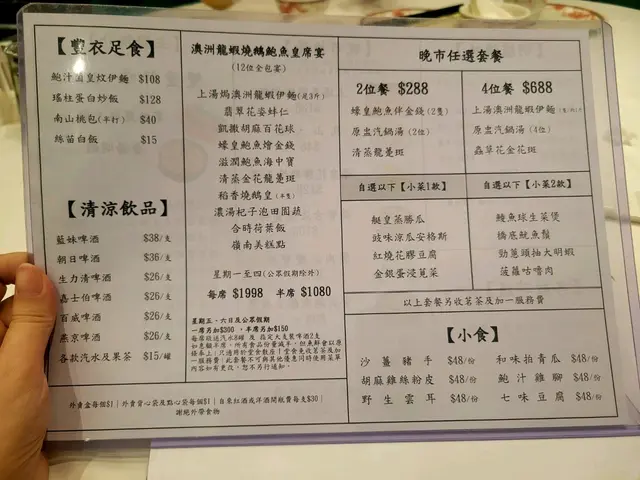 【豐衣足食】
鮑汁菌皇炆伊麵 $108
瑤柱蛋白炒飯 $128
南山桃包(半打) $40
絲苗白飯 $15
【清涼飲品】
藍妹啤酒 $38/支
朝日啤酒 $36/支
生力清啤酒 $26/支
嘉士伯啤酒 $26/支
百威啤酒 $26/支
燕京啤酒 $26/支
各款汽水及果茶 $15/罐
外賣盒每個$1|外賣背心袋及點心袋每個$1|自來紅酒或洋酒開瓶費每支$30|
謝絕外帶食物
澳洲龍蝦燒鵝鮑魚皇席宴
(12位全包宴)
上湯焗澳洲龍蝦伊麵(足3斤)
翡翠花姿蚌仁
凱撒胡麻百花球
蠔皇鮑魚燴金錢
滋潤鮑魚海中寶
清蒸金花龍躉斑
稻香燒鵝皇(半隻)
濃湯杞子泡田園蔬
合時荷葉飯
嶺南美糕點
星期一至四(公眾假期除外)
每席 $1998 半席 $1080
星期五、六日及公眾假期
一席另加$300 、半席另加$150
晚市任選套餐
2位餐 $288
蠔皇鮑魚伴金錢(2隻)
原盅汽鍋湯(2位)
清蒸龍躉斑
自選以下【小菜1款】
艇皇蒸勝瓜
豉味涼瓜安格斯
紅燒花膠豆腐
金銀蛋浸莧菜
4位餐 $688
上湯澳洲龍蝦伊麵
原盅汽鍋湯(4位)
蟲草花金花斑
自選以下【小菜2款】
鰻魚球生菜煲
橋底魷魚鬚
勁蔥頭抽大明蝦
菠蘿咕嚕肉
以上套餐另收茗茶及加一服務費
【小食】
沙薑豬手 $48/份 和味拍青瓜 $48/份
胡麻雞絲粉皮 $48/份 鮑汁雞腳 $48/份
野生雲耳 $48/份 七味豆腐 $48/份